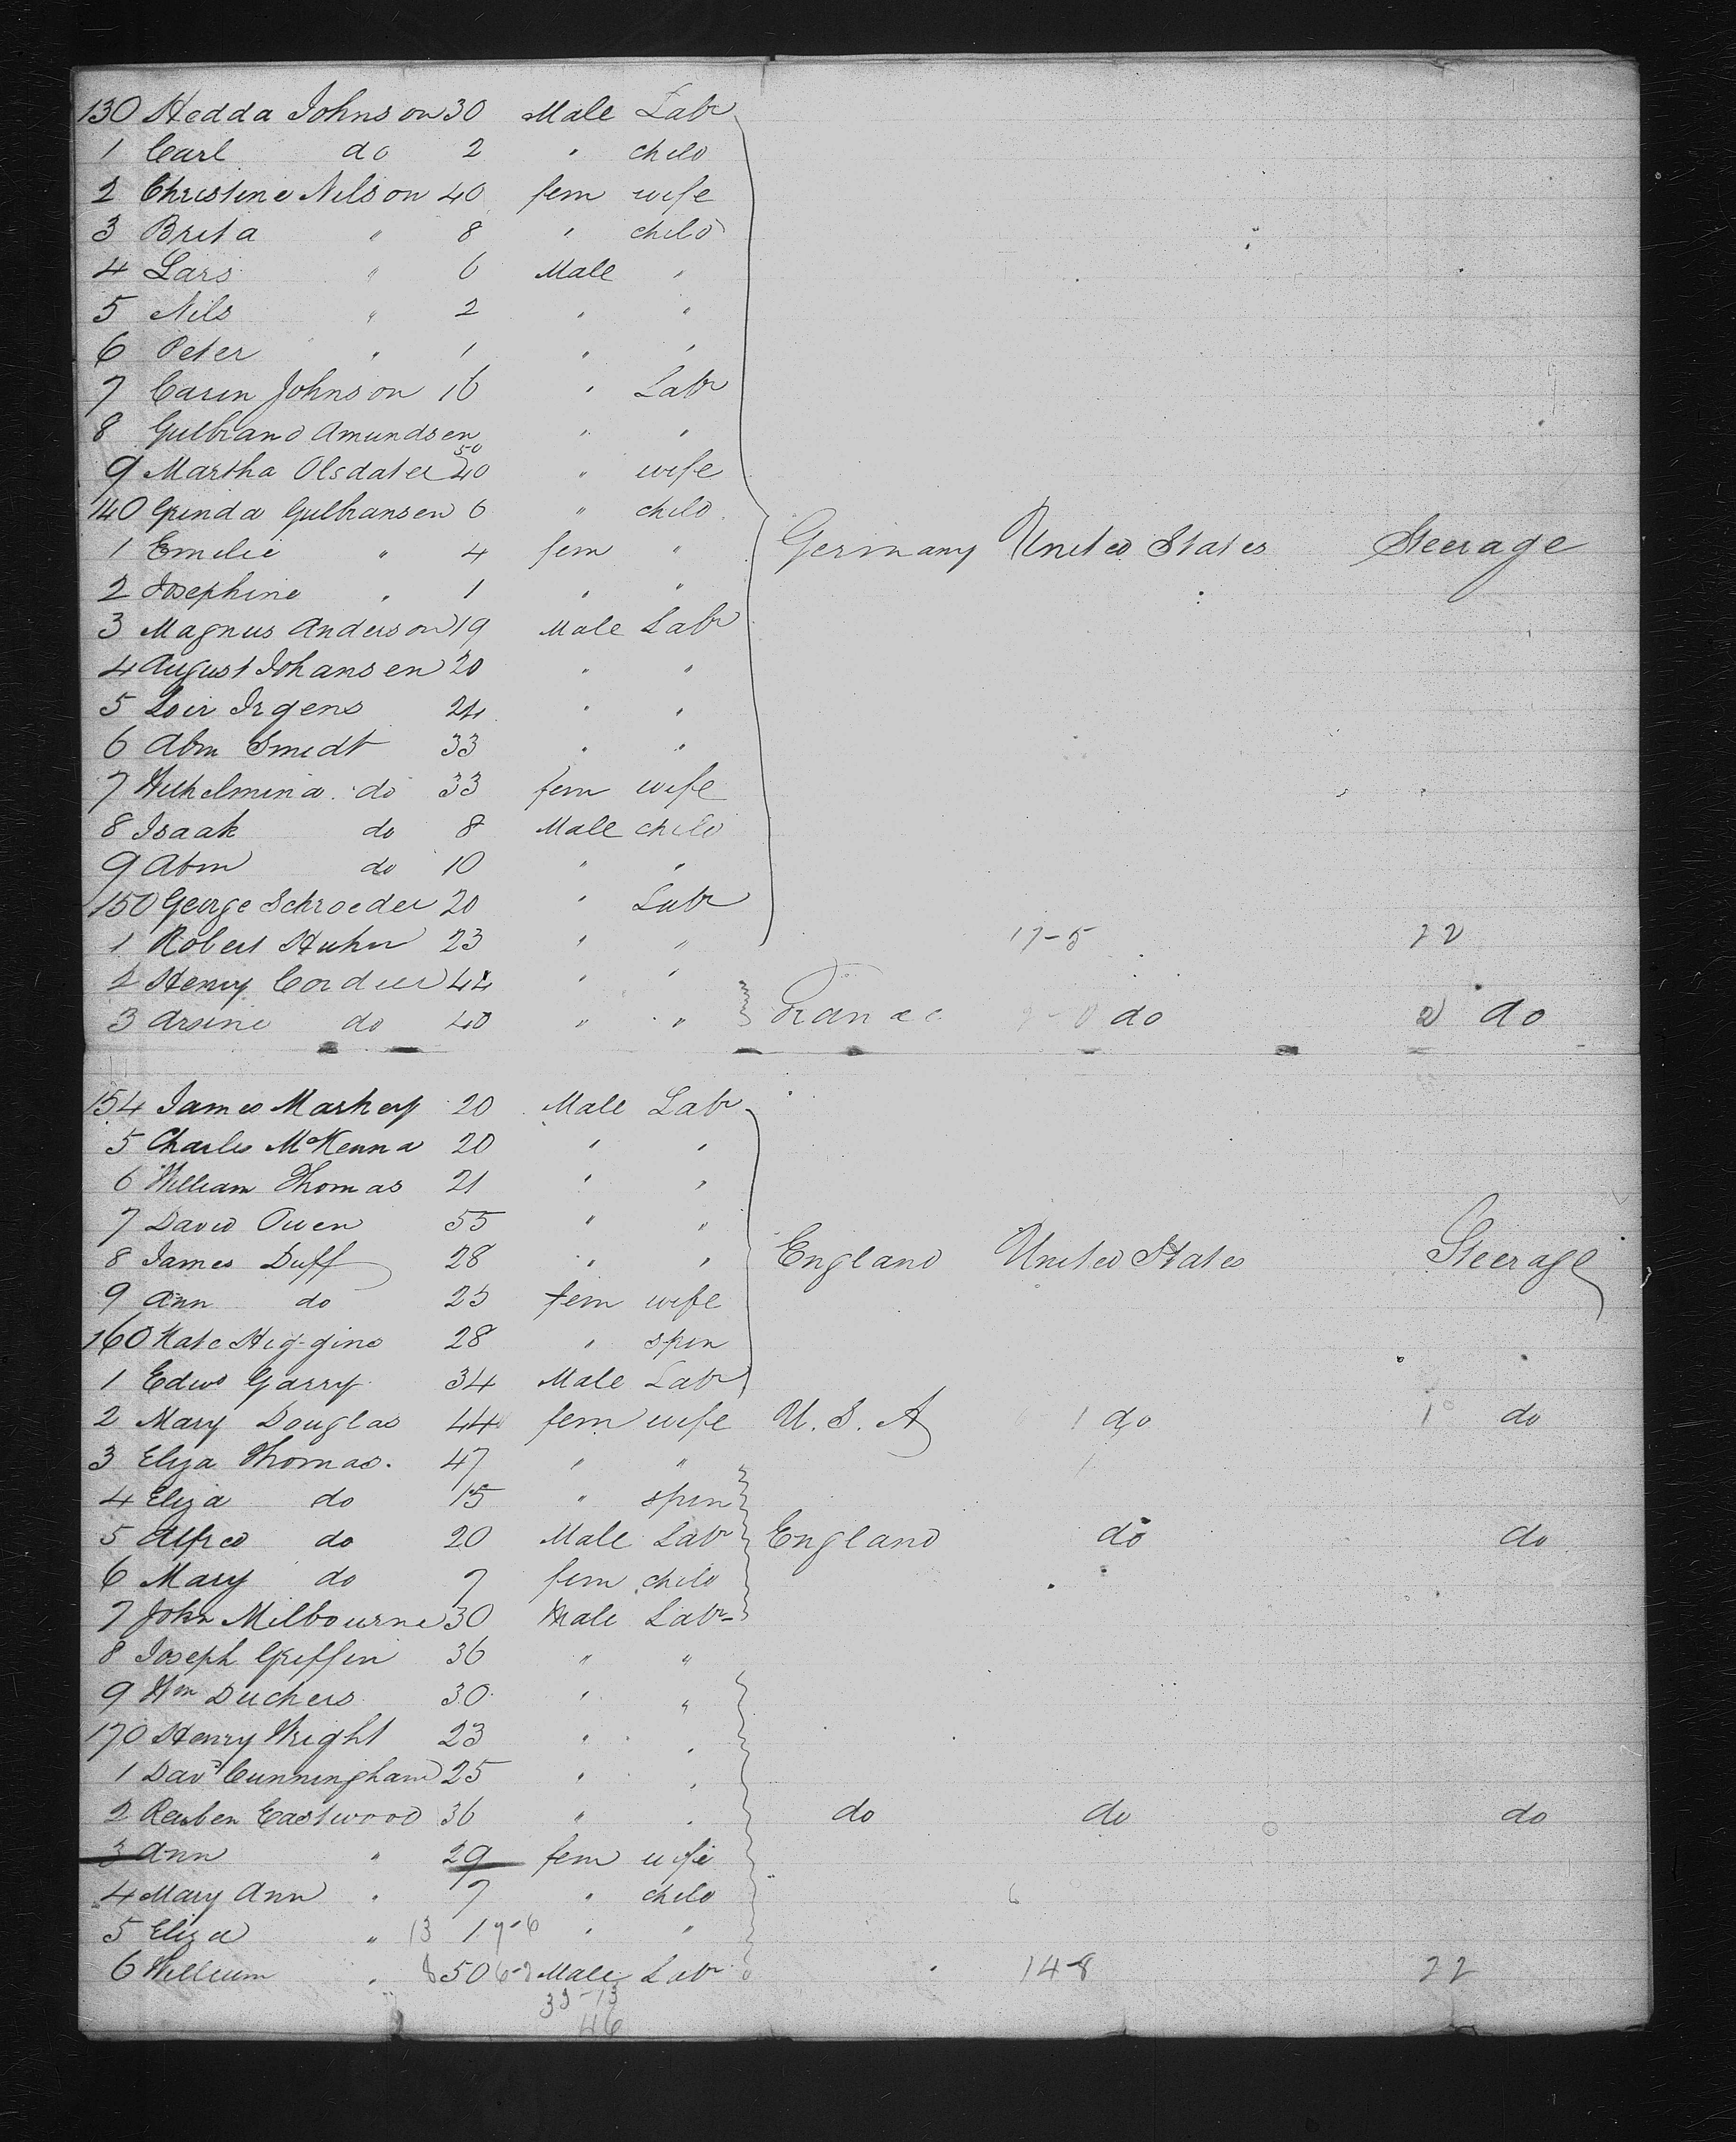 130 Hedda Johnson 30 Male Labr
1 Carl do 2 " child
2 Christine Nilson 40 fem wife
3 Brita " 8 " child
4 Lars " 6 Male "
5 Nils " 2 " "
6 Peter " 1 " "
7 Carin Johnson 16 " Labr
8 Gulbrand Amundsen 50 " "
9 Martha Olsdater 40 " wife
140 Grinda Gulbransen 6 " child
1 Emilie " 4 fem " Germany United States Steerage
2 Josephine " 1 " "
3 Magnus Anderson 19 Male Labr
4 August Johansen 20 " "
5 Loir Irgens 24 " "
6 Abm Smidt 33 " "
7 Wilhelmina do 33 fem wife
8 Isaak do 8 Male child
9 Abm do 10 " "
150 George Schroeder 20 " Labr
1 Robert Huhn 23 " " 17-5 22
2 Henry Cordier 44 " "
3 Arsine do 40 " " France do 2 do
154 James Markey 20 Male Labr
5 Charles McKenna 20 " "
6 William Thomas 21 " "
7 David Owen 55 " "
8 James Duff 28 " " England United States Steerage
9 Ann do 25 fem wife
160 Kate Higgins 28 " spin
1 Edwd Garry 34 Male Labr
2 Mary Douglas 44 fem wife U.S.A 1 do 1 do
3 Eliza Thomas. 47 " "
4 Eliza do 15 " spin
5 Alfred do 20 Male Labr England do do
6 Mary do 7 fem child
7 John Milbourne 30 Male Labr
8 Joseph Griffin 36 " "
9 Wm Duckers 30 " "
170 Henry Wright 23 " "
1 Davd Cunningham 25 " "
2 Reuben Eastwood 36 " " do do do
3 Ann " 29 fem wife
4 Mary Ann " 7 " child
5 Eliza " 13 17-6 " "
6 William " 50 6-2 Male Labr 14-8 22
33-13
46